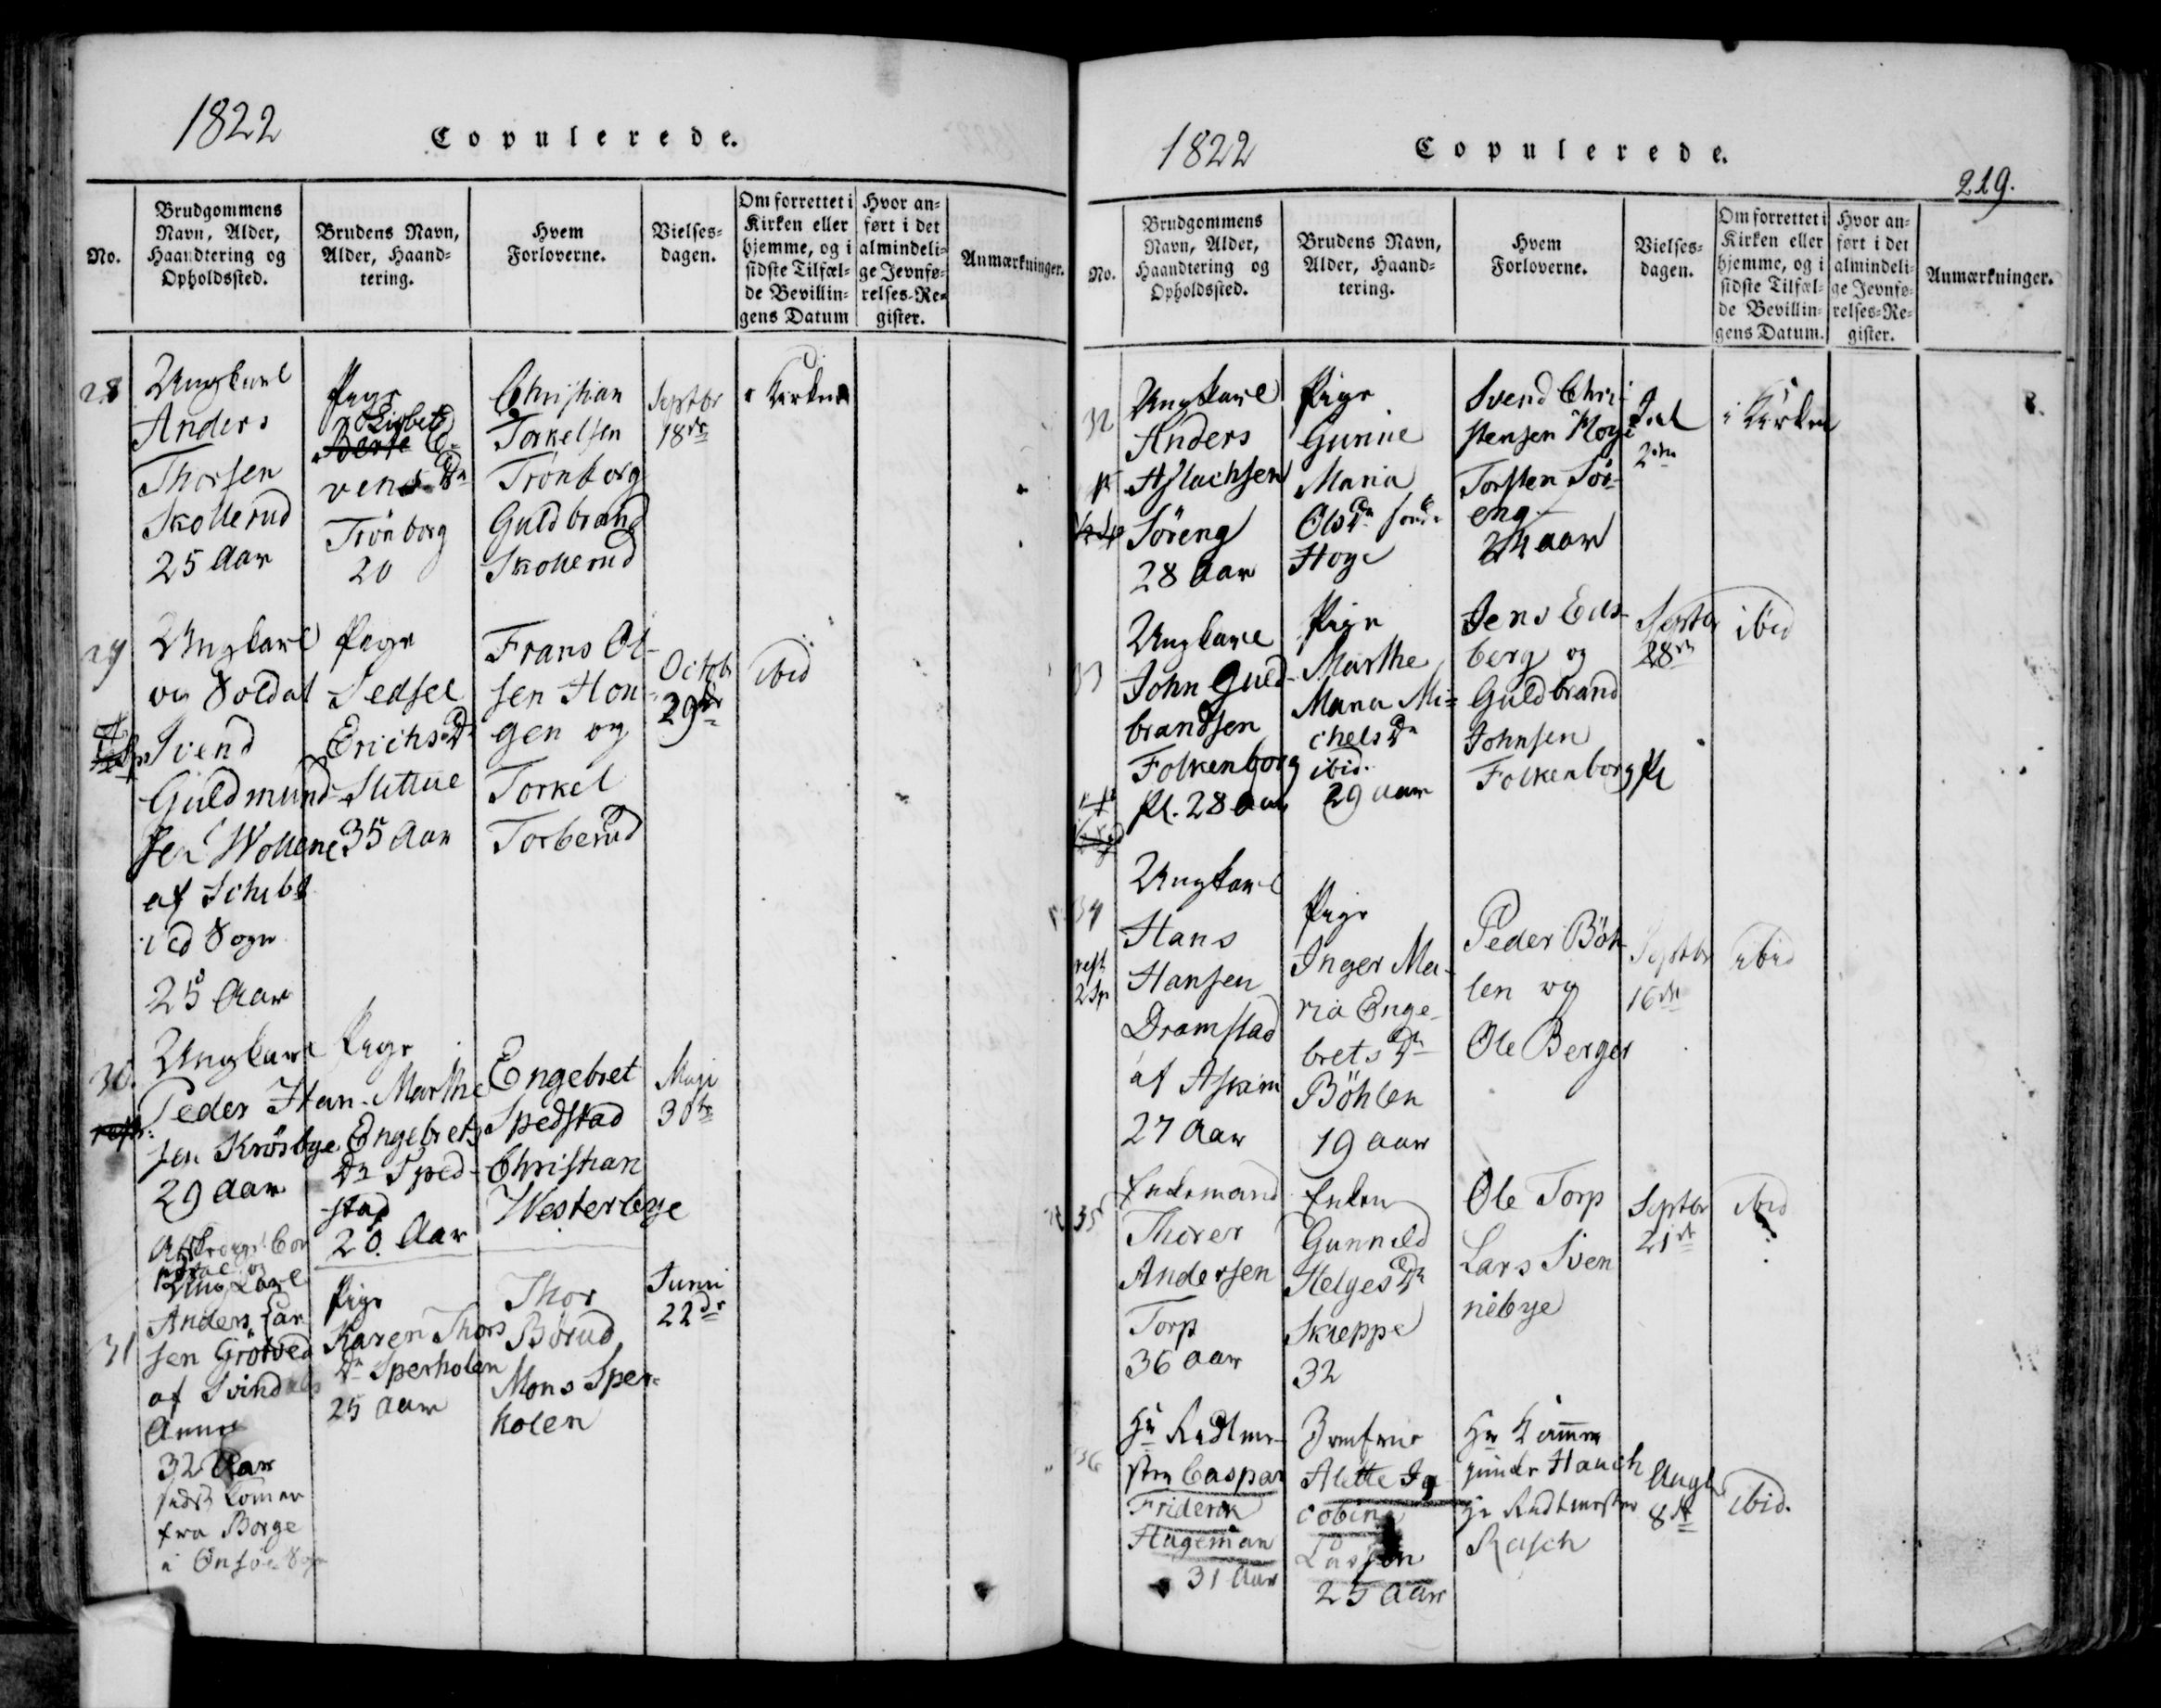 1822
Copulerede.
No.
Brudgommens
Navn, Alder,
Haandtering og
Opholdssted.
Brudens Navn,
Alder, Haand-
tering.
Hvem
Forloverne.
Vielses-
dagen.
Om forrettet i
Kirken eller
hjemme, og i
sidste Tilfæl-
de Bevillin-
gens Datum
Hvor an-
ført i det
almindeli-
ge Jevnfø-
relses-Re-
gister.
Anmærkninger.
28
Ungkarl
Anders
Thorsen
Skollerud
25 Aar
Pige
Lisbet
Berte E-
vens Dr
Trönborg
20
Christian
Torkelsen
Trönborg
Guldbrand
Skollerud
Septbr
18de
i Kirken
29
Ungkarl
og Soldat
Svend
Guldmund-
sen Wollene
af Schibt
ved Sogn
25 Aar
Pige
Sedsel
Erichs Dr
Slittue
35 Aar
Frans Ol-
sen Hon-
gen og
Torkel
Torberud
Octobr
29de
ibid
30.
Ungkarl
Peder Han-
sen Krösbye
29 Aar
Pige
Marthe
Engebrets
Dr Sped-
stad
20 Aar
Engebret
Spedstad
Christian
Westerbye
Maji
30te
31
Afskeeds Cor
poral og
Ungkarl
Anders Lar
sen Grötved
af Svindals
Annex
32 Aar
sidst kommen
fra Borge
i Onsöe Sogn
Pige
Karen Thors
Dr Sperholen
25 Aar
Thor
Börud
Mons Sper-
holen
Junii
22de
1822
Copulerede.
219.
No.
Brudgommens
Navn, Alder,
Haandtering og
Opholdssted.
Brudens Navn,
Alder, Haand-
tering.
Hvem
Forloverne.
Vielses-
dagen.
Om forrettet i
Kirken eller
hjemme, og i
sidste Tilfæl-
de Bevillin-
gens Datum.
Hvor an-
ført i det
almindeli-
ge Jevnfø-
relses-Re-
gister.
Anmærkninger.
32
Ungkarl
Anders
Aslachsen
Söreng
28 Aar
Pige
Gunne
Maria
Ols Dr
Hoye
Svend Chri-
stensen Hoye
Torsten Sör-
eng
24 aar
Jul
2den
i Kirken
33
Ungkarl
John Guld-
brandsen
Folkenborg
Pl. 28 Aar
Pige
Marthe
Maria Mi-
chels Dr
ibid.
29 aar
Jens Eids-
berg og
Guldbrand
Johnsen
Folkenborg Pl
Septbr
28de
ibid
34
Ungkarl
Hans
Hansen
Dramstad
af Askim
27 Aar
Pige
Inger Ma-
ria Enge-
brets Dr
Böhlen
19 aar
Peder Böh-
len og
Ole Berger
Septbr
16de
ibid
35
Enkemand
Thorer
Andersen
Torp
36 aar
Enken
Gunnild
Helges Dr
Skieppe
32
Ole Torp
Lars Sven
nebye
Septbr
21de
ibid
36
Hr Ridtme-
ster Caspar
Friderik
Hageman
31 Aar
Jomfrue
Alette Ja
cobine
Lasson
25 Aar
Hr Kamme
junker Hauch
Hr Ridtmester
Rasch
Augt
8de
ibid.